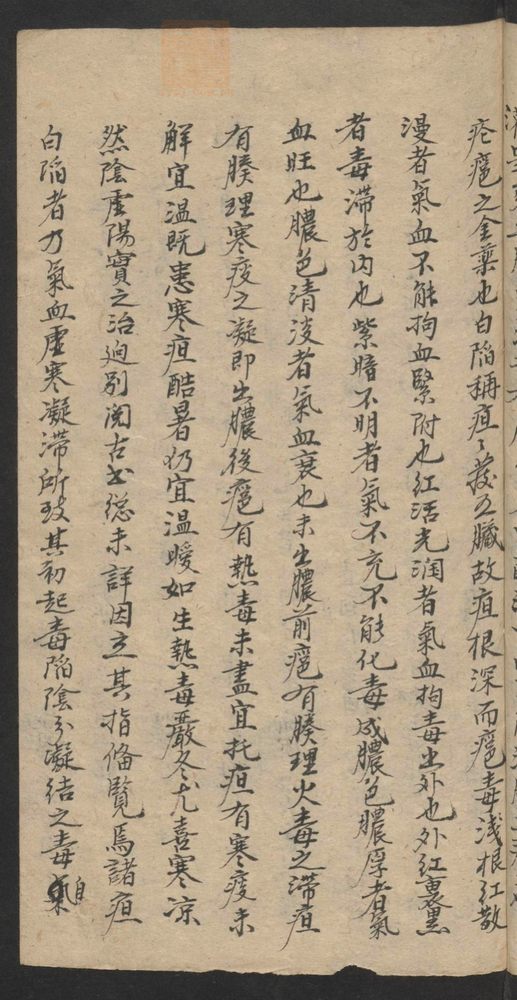 疮瘪之金藥也白陷稱疽々發五臟故疽根深而瘪毒淺根紅散
漫者氣血不能拘血緊附也红活光润者氣血拘毒出外也外红裹黑
者毒滯於内也紫暗不明者氣不充不能化毒成膿色膿厚者氣
血旺也膿色清淡者氣血衰也未出膿前瘪有腠理火毒之滯疽
有腠理寒痰之凝即出膿後瘪有熱毒未盡宜托疽有寒痰未
解宜温既患寒疽酷暑仍宜温暖如生熱毒嚴冬尤喜寒凉
然陰虚陽實之治逈别阅古书總未詳因立其指俻覧焉諸疽
白陷者乃氣血虚寒凝滯所致其初起毒陷陰分凝結之毒自